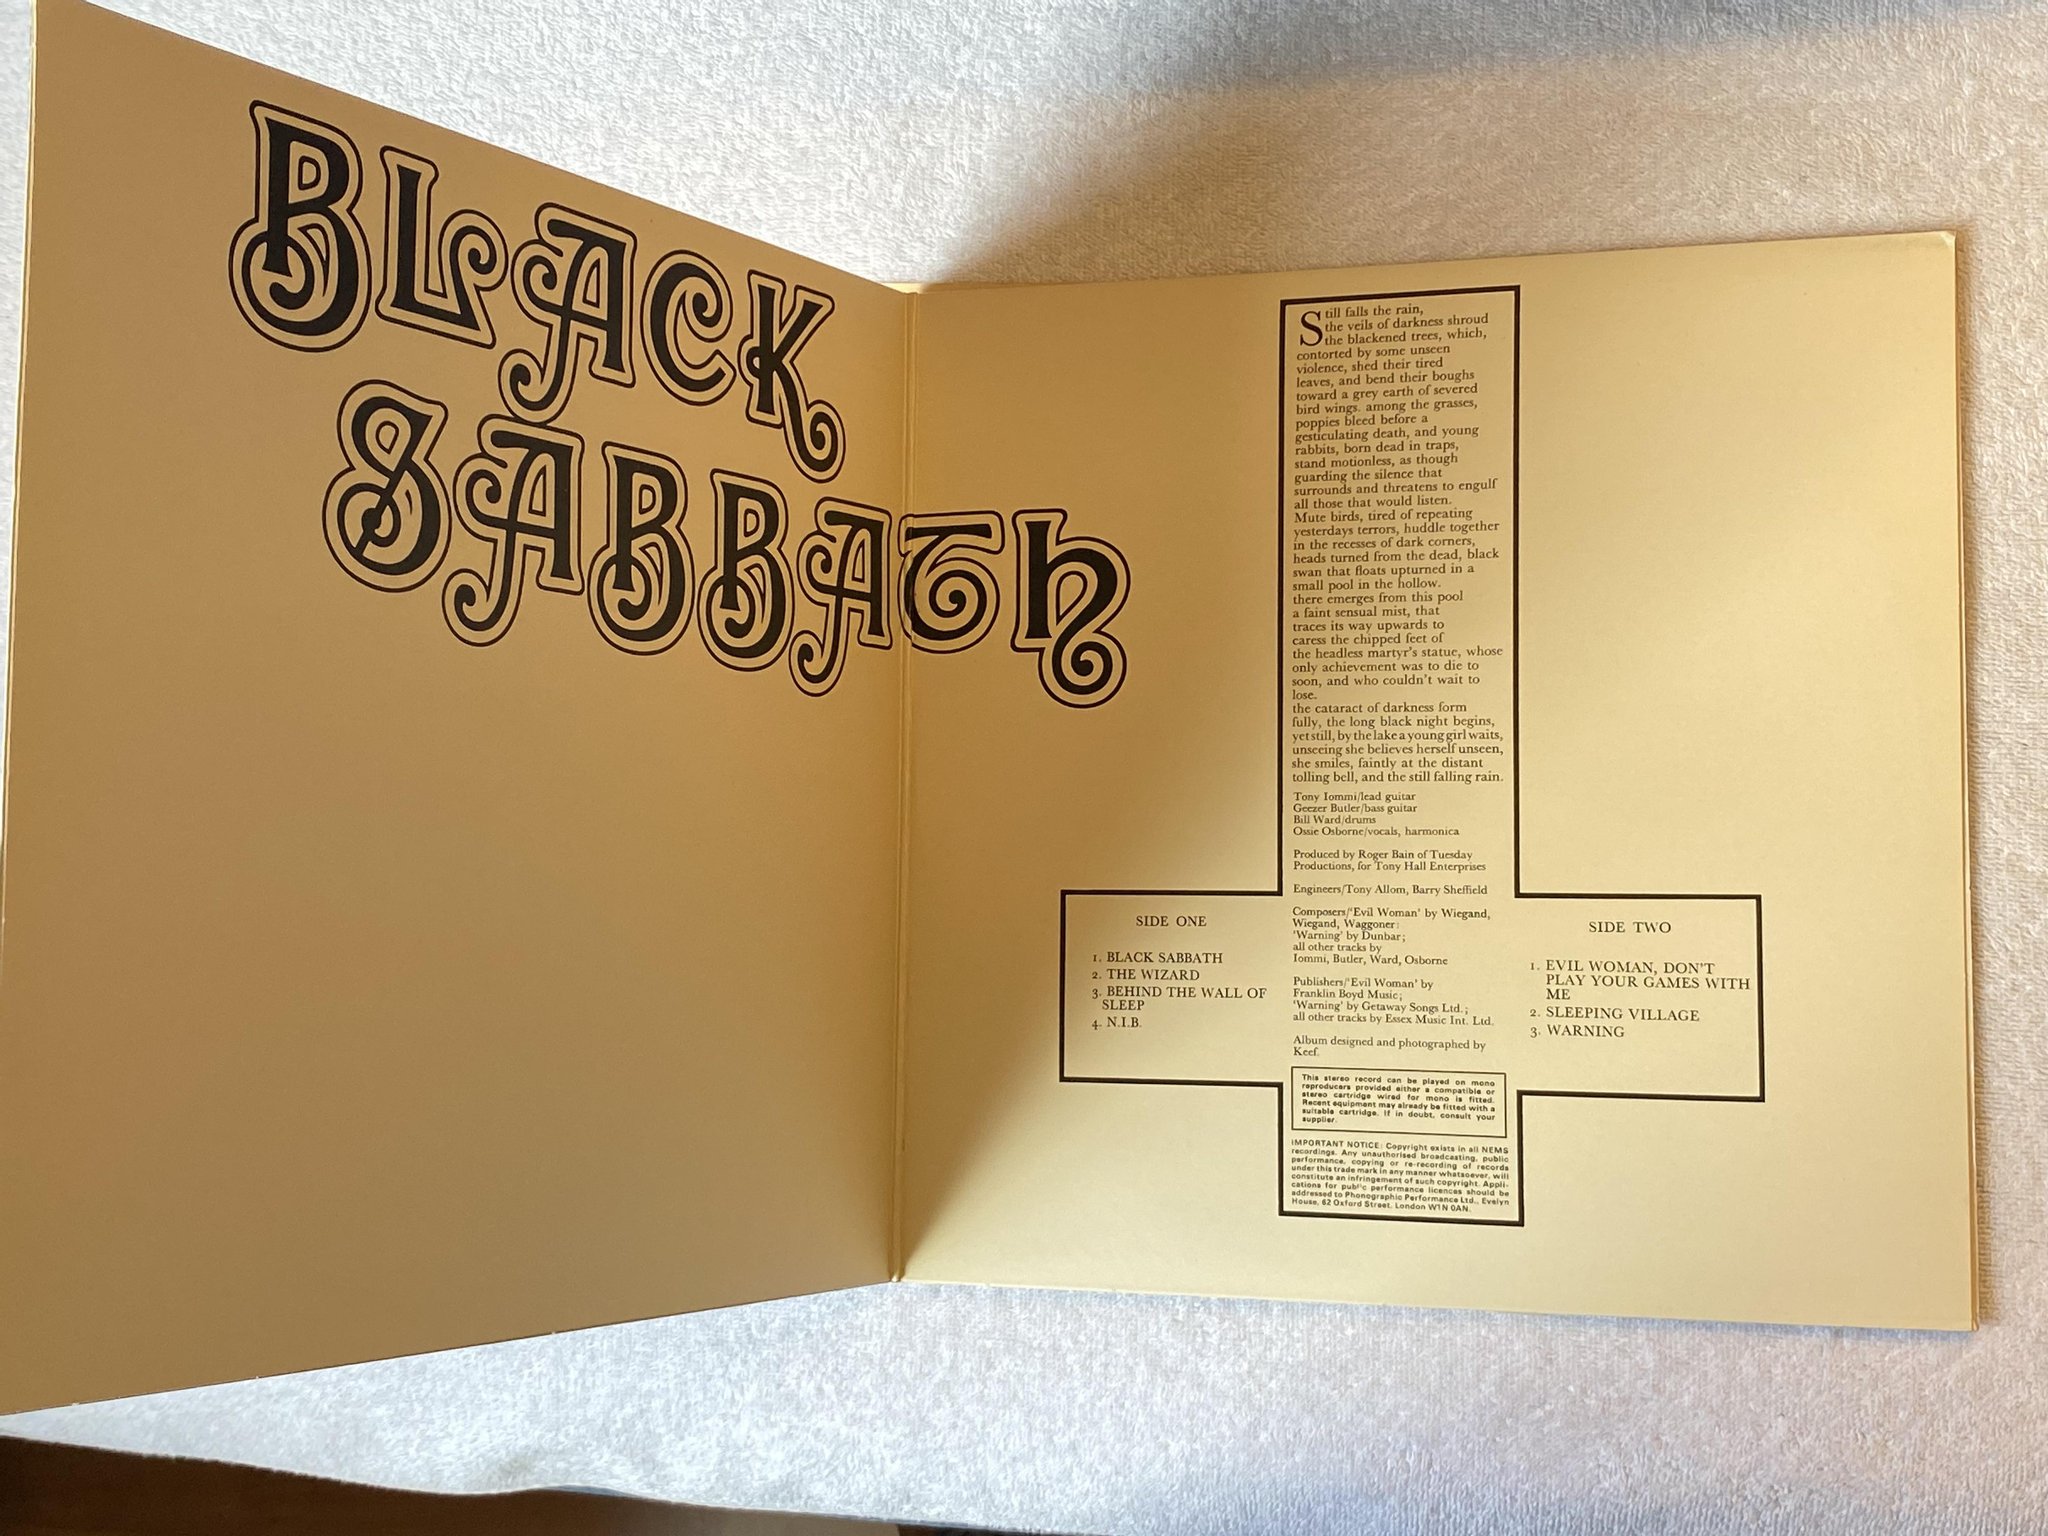 BLACK
SABBATH
Still falls the rain,
the veils of darkness shroud
the blackened trees, which,
contorted by some unseen
violence, shed their tired
leaves, and bend their boughs
toward a grey earth of severed
bird wings. among the grasses,
poppies bleed before a
gesticulating death, and young
rabbits, born dead in traps,
stand motionless, as though
guarding the silence that
surrounds and threatens to engulf
all those that would listen.
Mute birds, tired of repeating
yesterdays terrors, huddle together
in the recesses of dark corners,
heads turned from the dead, black
swan that floats upturned in a
small pool in the hollow.
there emerges from this pool
a faint sensual mist, that
traces its way upwards to
caress the chipped feet of
the headless martyr's statue, whose
only achievement was to die to
soon, and who couldn't wait to
lose.
the cataract of darkness form
fully, the long black night begins,
yet still, by the lake a young girl waits,
unseeing she believes herself unseen,
she smiles, faintly at the distant
tolling bell, and the still falling rain.
Tony Iommi/lead guitar
Geezer Butler/bass guitar
Bill Ward/drums
Ossie Osborne/vocals, harmonica
Produced by Roger Bain of Tuesday
Productions, for Tony Hall Enterprises
Engineers/Tony Allom, Barry Sheffield
Composers/'Evil Woman' by Wiegand,
Wiegand, Waggoner:
'Warning' by Dunbar;
all other tracks by
Iommi, Butler, Ward, Osborne
Publishers/'Evil Woman' by
Franklin Boyd Music;
'Warning' by Getaway Songs Ltd.;
all other tracks by Essex Music Int. Ltd.
Album designed and photographed by
Keef.
SIDE ONE
1. BLACK SABBATH
2. THE WIZARD
3. BEHIND THE WALL OF
SLEEP
4. N.I.B.
SIDE TWO
1. EVIL WOMAN, DON'T
PLAY YOUR GAMES WITH
ME
2. SLEEPING VILLAGE
3. WARNING
This stereo record can be played on mono
reproducers provided either a compatible or
stereo cartridge wired for mono is fitted.
Recent equipment may already be fitted with a
suitable cartridge. If in doubt, consult your
supplier.
IMPORTANT NOTICE: Copyright exists in all NEMS
recordings. Any unauthorised broadcasting, public
performance, copying or re-recording of records
under this trade mark in any manner whatsoever, will
constitute an infringement of such copyright. Appli-
cations for public performance licences should be
addressed to Phonographic Performance Ltd., Evelyn
House, 62 Oxford Street, London W1N 0AN.